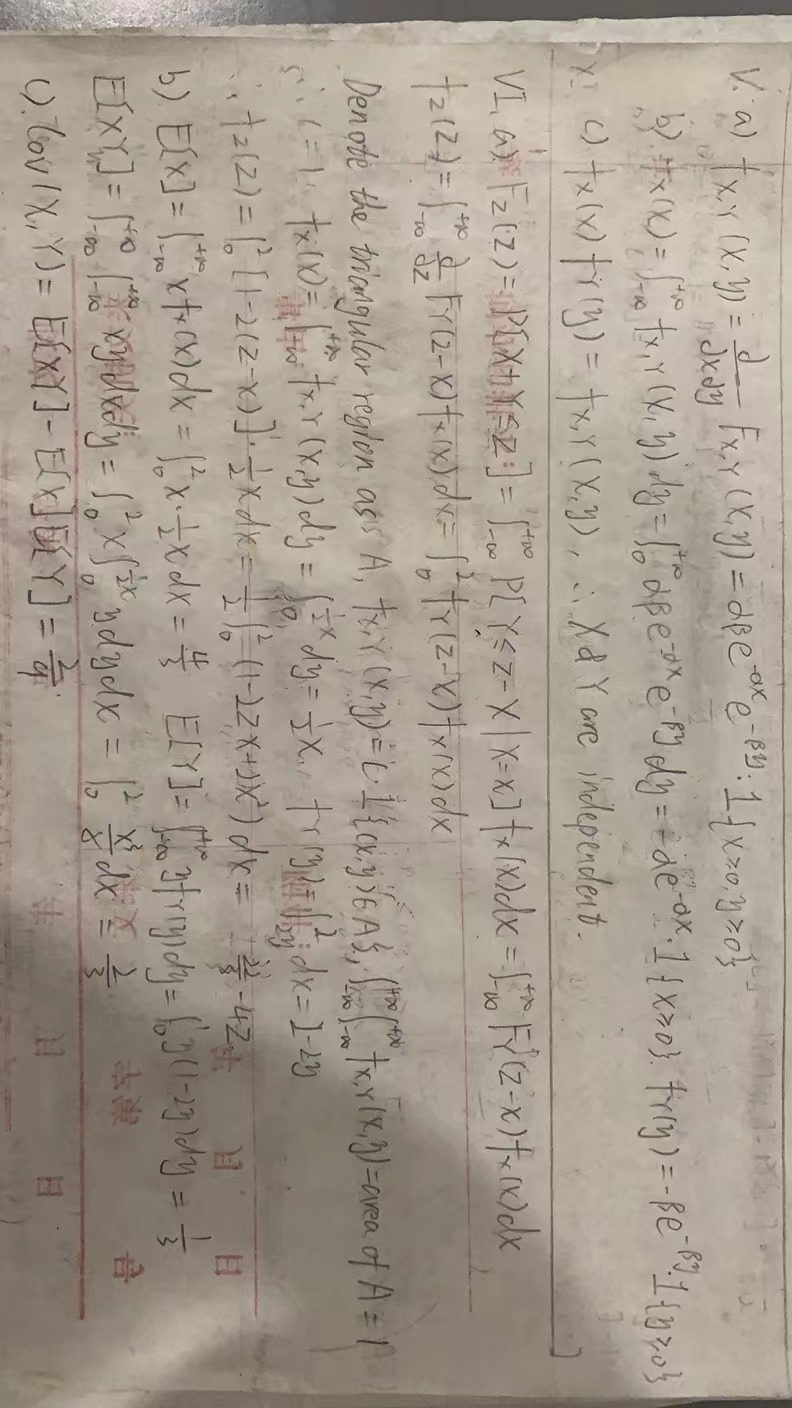 V. a) f_{X,Y}(x,y) = ∂/∂x∂y F_{X,Y}(x,y) = αβe^{-αx}e^{-βy}·1{x≥0,y≥0}
b) f_X(x) = ∫_{-∞}^{+∞} f_{X,Y}(x,y)dy = ∫_0^{+∞} αβe^{-αx}e^{-βy}dy = -αe^{-αx}·1{x≥0}. f_Y(y) = -βe^{-βy}·1{y≥0}
c) f_X(x) f_Y(y) = f_{X,Y}(x,y), ∴ X & Y are independent.
VI. a) F_Z(z) = P[X+Y≤z] = ∫_{-∞}^{+∞} P[Y≤z-X|X=x] f_X(x)dx = ∫_{-∞}^{+∞} F_Y(z-x) f_X(x)dx
f_Z(z) = ∫_{-∞}^{+∞} ∂/∂z F_Y(z-x) f_X(x)dx = ∫_0^2 f_Y(z-x) f_X(x)dx
Denote the triangular region as A, f_{X,Y}(x,y) = C·1{(x,y)∈A}, ∫_{-∞}^{+∞}∫_{-∞}^{+∞} f_{X,Y}(x,y) = area of A = 1
∴ C = 1. f_X(x) = ∫_{-∞}^{+∞} f_{X,Y}(x,y)dy = ∫_0^{½x} dy = ½x. f_Y(y) = ∫_{2y}^2 dx = 2-2y
∴ f_Z(z) = ∫_0^2 [1-2(z-x)]·½x dx = ½∫_0^2 (1-2zx+2x²)dx = -4z.
b) E[X] = ∫_{-∞}^{+∞} x f_X(x)dx = ∫_0^2 x·½x dx = 4/3 E[Y] = ∫_{-∞}^{+∞} y f_Y(y)dy = ∫_0^1 y(1-2y)dy = 1/3
E[XY] = ∫_{-∞}^{+∞}∫_{-∞}^{+∞} xy dxdy = ∫_0^2 x∫_0^{½x} y dydx = ∫_0^2 x³/8 dx = 2/3
c). Cov(X,Y) = E[XY] - E[X]E[Y] = 2/9.